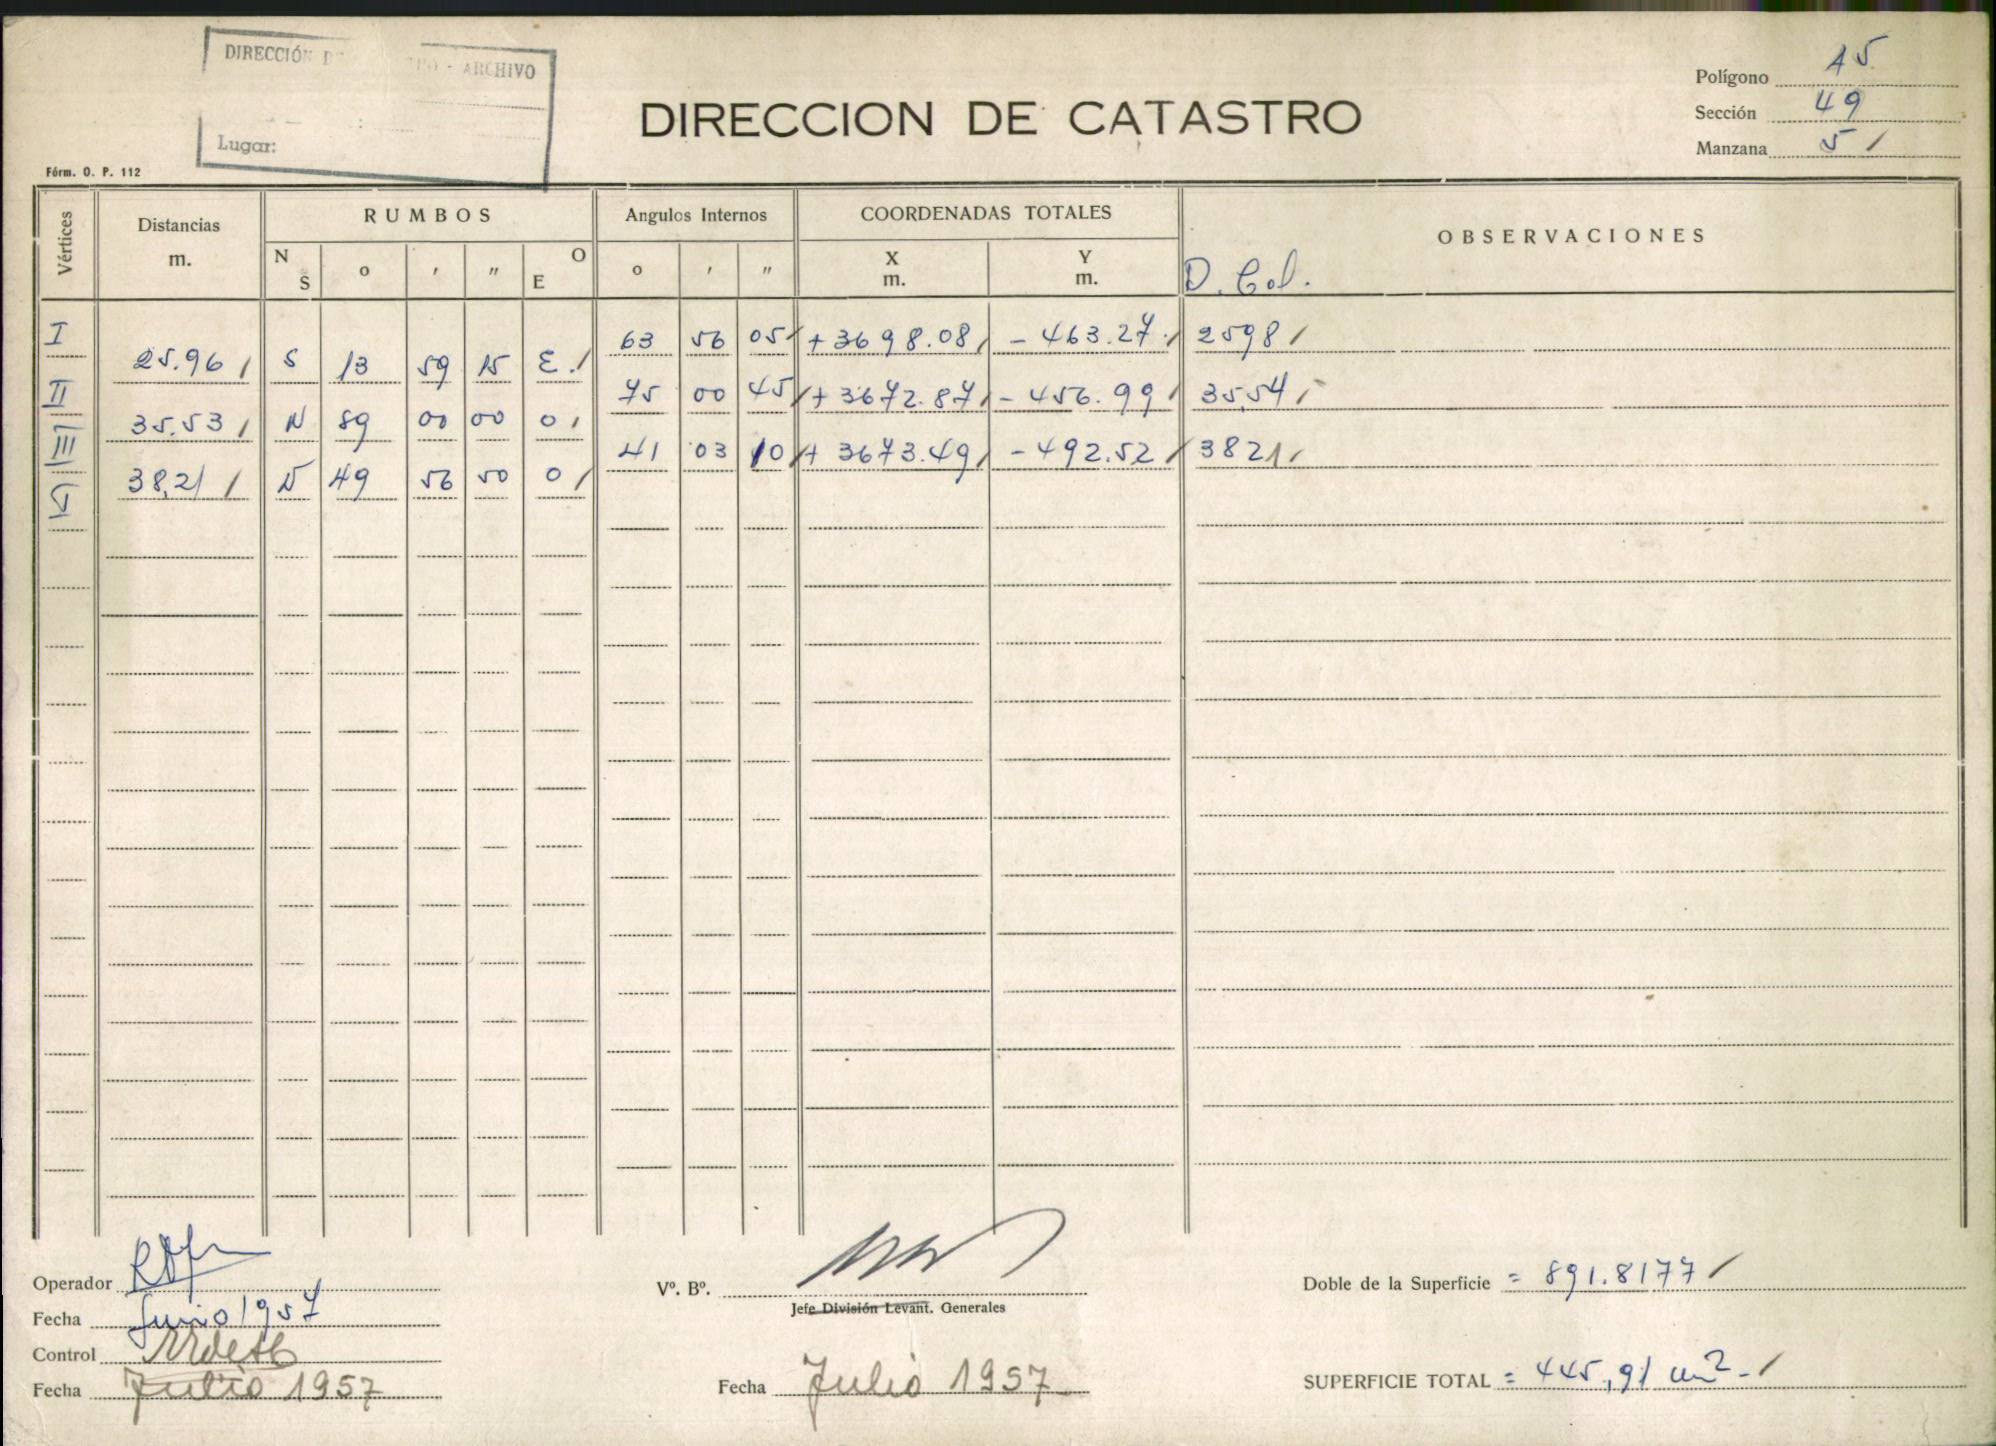 DIRECCIÓN D - ARCHIVO
Lugar:
DIRECCION DE CATASTRO
Polígono 15
Sección 49
Manzana 51
Fórm. O. P. 112
Vértices Distancias m. RUMBOS Angulos Internos COORDENADAS TOTALES OBSERVACIONES
N S o ' " O E o ' " X m. Y m. D. Col.
I 63 56 05 / + 3698.08 / - 463.27. / 2598 /
25.96 / S 13 59 15 E. /
II 75 00 45 / + 3672.87 / - 456.99 / 35,54 /
35.53 / N 89 00 00 O /
III 41 03 10 / + 3673.49 / - 492.52 / 3821 /
38,21 / N 49 56 50 O /
Operador
Fecha Junio 1957
Control
Fecha Julio 1957
Vº. Bº.
Jefe División Levant. Generales
Fecha Julio 1957
Doble de la Superficie = 891.8177 /
SUPERFICIE TOTAL = 445,91 m² - /